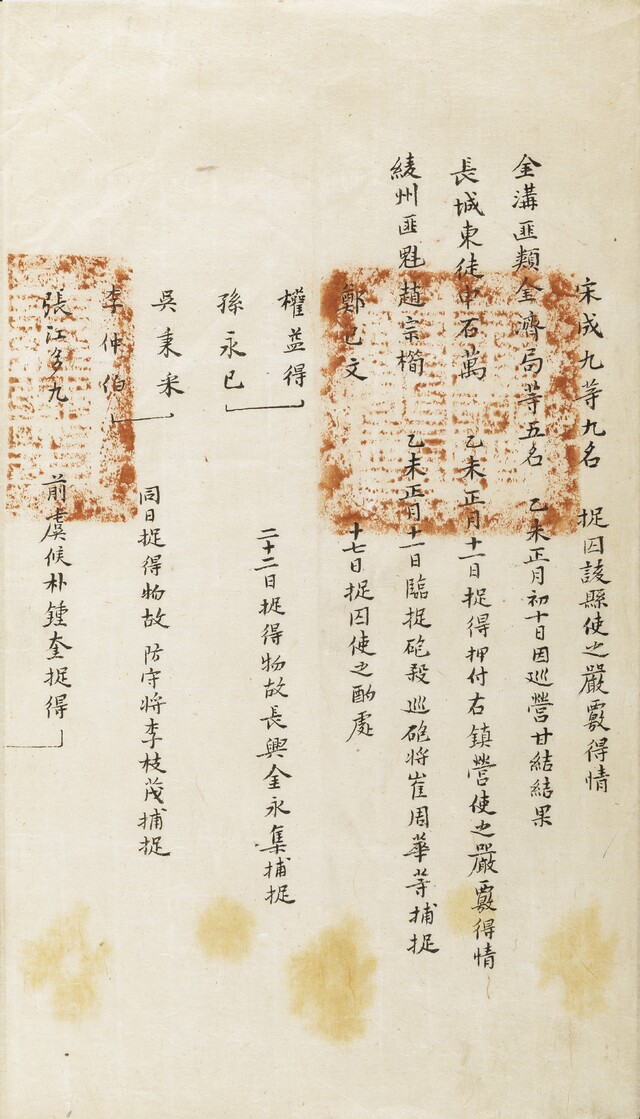 宋成九等九名 捉囚該縣使之嚴覈得情
金溝匪類金濟局等五名 乙未正月初十日因巡營甘結結果
長城東徒中石萬 乙未正月十一日捉得押付右鎮營使之嚴覈得情
綾州匪魁趙宗櫛 乙未正月十一日臨捉砲殺 巡砲將崔周華等捕捉
鄭巳文 十七日捉囚使之酌處
權益得
孫永巳 二十二日捉得物故長興金永集捕捉
吳秉采
李仲伯 同日捉得物故 防守將李枝茂捕捉
張江多九 前虞候朴鍾奎捉得